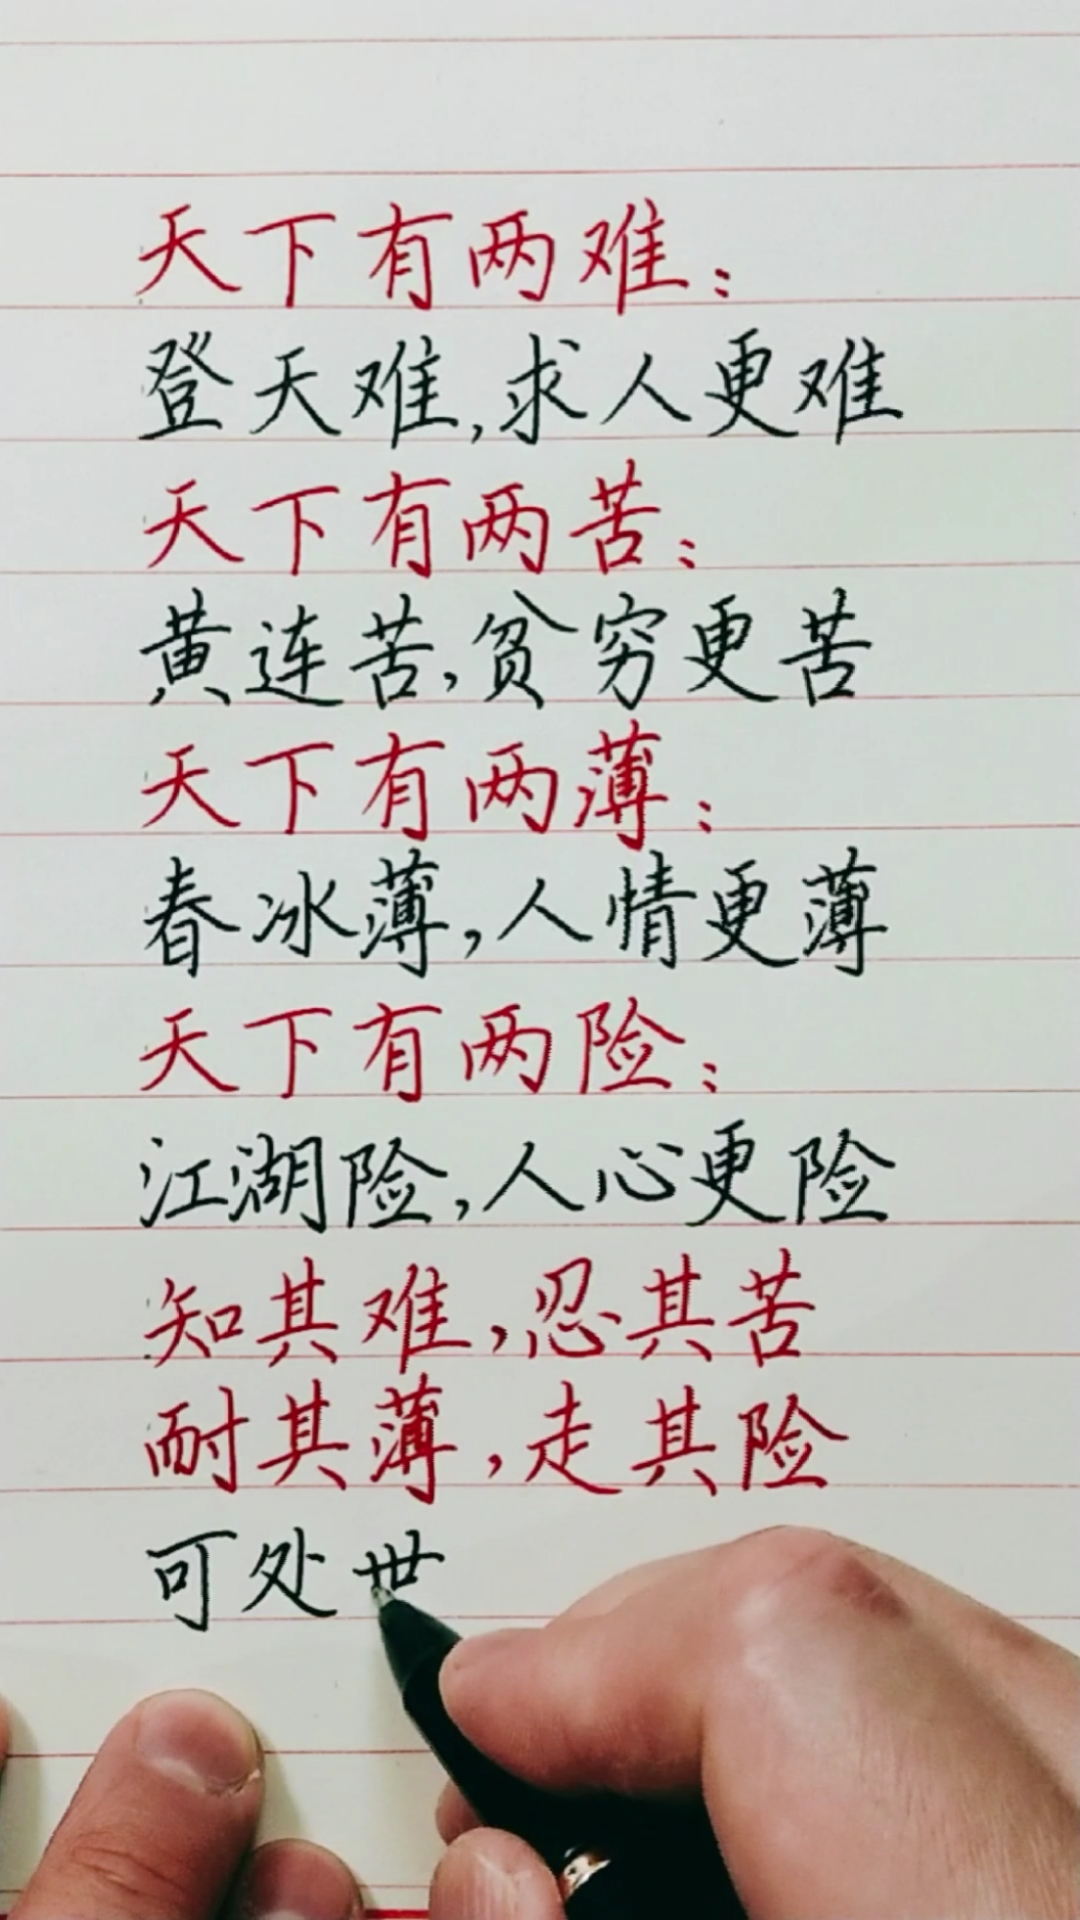 天下有两难：
登天难,求人更难
天下有两苦：
黄连苦,贫穷更苦
天下有两薄：
春冰薄,人情更薄
天下有两险：
江湖险,人心更险
知其难,忍其苦
耐其薄,走其险
可处世